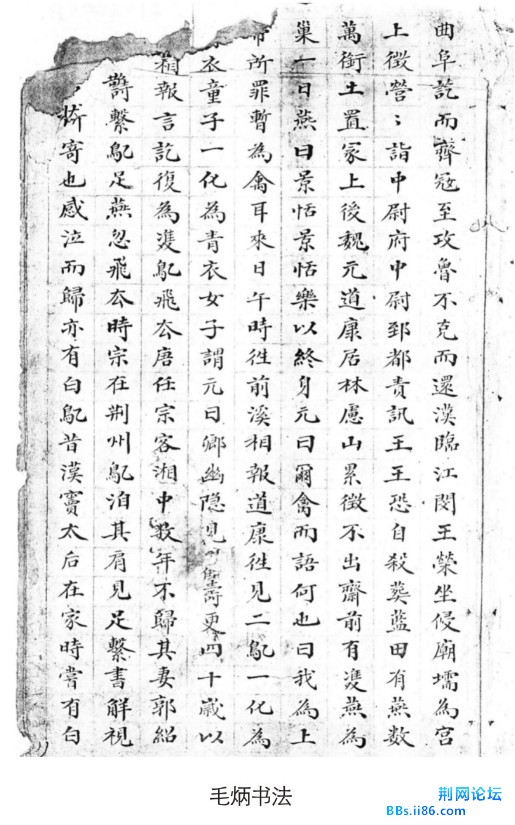 曲阜訖而齊冦至攻魯不克而還漢臨江閔王榮坐侵廟壖為宮
上徵營〻詣中尉府中尉郅都責訊王王恐自殺葬藍田有燕數
萬銜土置冢上後魏元道康居林慮山累徵不出齋前有雙燕為
巢一日燕曰景恬景恬樂以終身元曰爾禽而語何也曰我為上
帝所罪暫為禽耳來日午時往前溪相報道康往見二鳦一化為
衣童子一化為青衣女子謂元曰卿幽隐見 更四十歲以
相報言訖復為雙鳦飛去唐任宗客湘中数年不歸其妻郭紹
蘭繫鳦足燕忽飛去時宗在荆州鳦泊其肩見足繫書解視
所寄也感泣而歸亦有白鳦昔漢竇太后在家時嘗有白
毛炳书法
荆网论坛
BBs.ii86.com